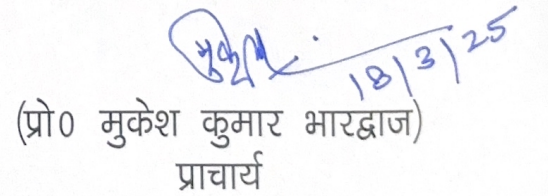 मुकेश
18/3/25
(प्रो0 मुकेश कुमार भारद्वाज)
प्राचार्य